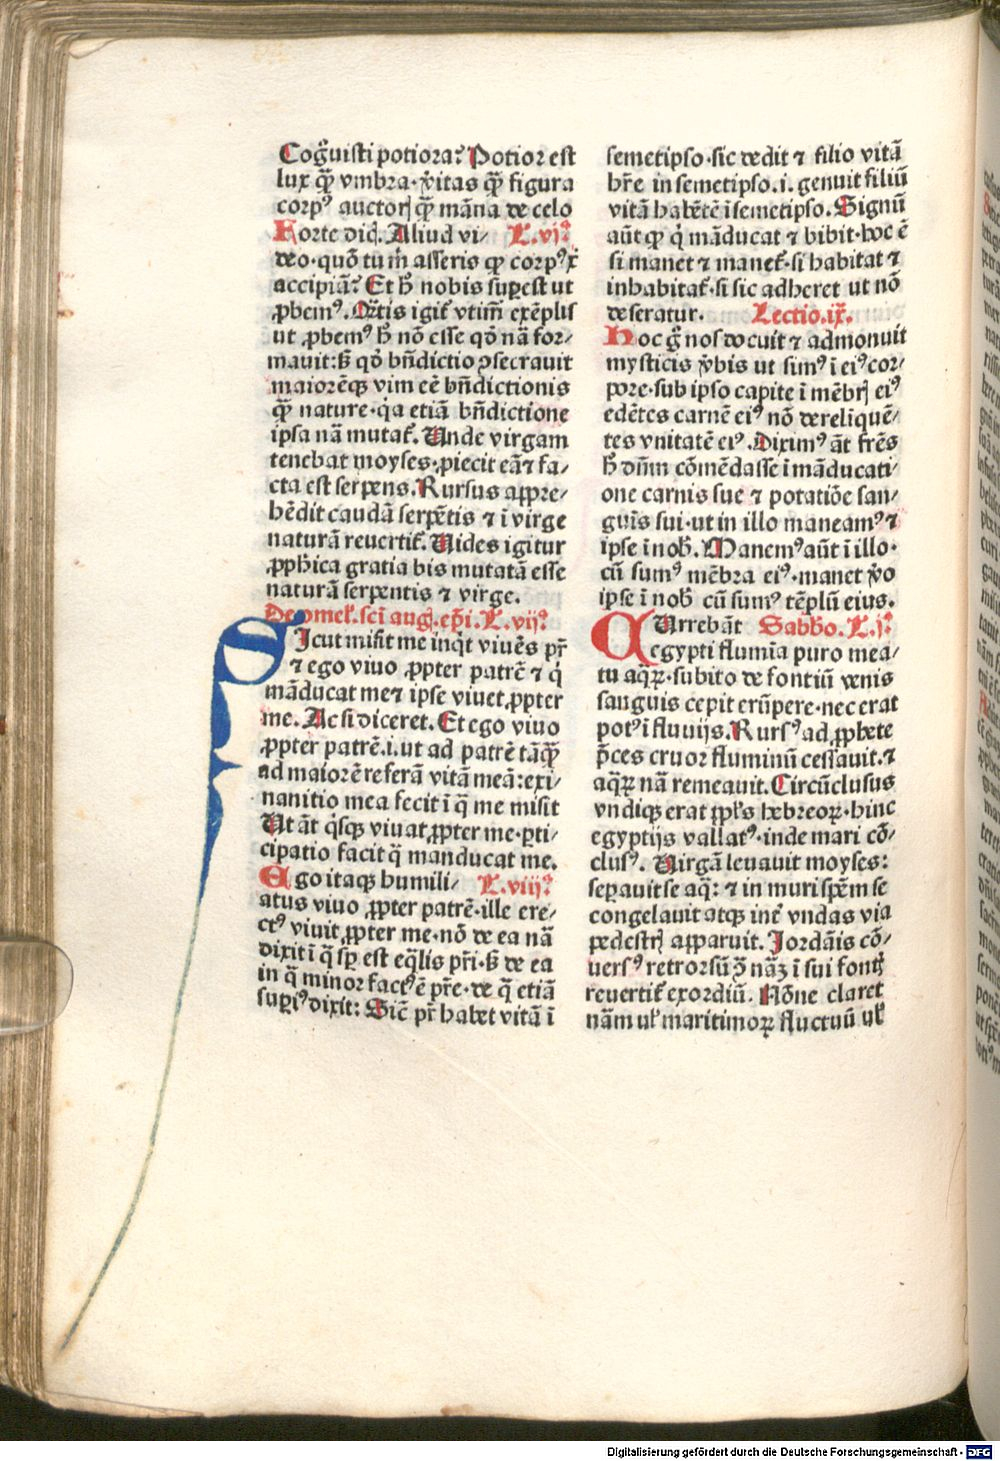 Cog̃uisti potiora? Potior est
lux q̃ʒ vmbra·v̾itas q̃ʒ figura
corpꝰ auctorꝭ q̃ʒ mãna de celo
Forte dicꝭ. Aliud vi⸗ L.vj?
deo·quõ tu m̃ asseris ꝙ corpꝰ xͥ
accipiã? Et h̃ nobis suꝑest ut
ꝓbemꝰ. Q̃tis igit᷑ vtim̃ exẽplis
ut ꝓbemꝰ h̃ nõ esse qð nã for⸗
mauit:s̃ qð bñdictio ꝯsecrauit
maiorẽqꝫ vim eẽ bñdictionis
q̃ʒ nature·qꝛa etiã bñdictione
ipsa nã mutat᷑. Unde virgam
tenebat moyses·ꝓiecit eã ⁊ fa⸗
cta est serpens. Rursus appre⸗
hẽdit caudã serpẽtis ⁊ ĩ virge
naturã reuertit᷑. Uides igitur
ꝓph̾ica gratia bis mutatã esse
naturã serpentis ⁊ virge.
De omel᷑. sc̃i augꝭ. ep̃i. L.vij?
SIcut misit me inq̇t viuẽs pr̃
⁊ ego viuo ꝓpter patrẽ ⁊ q̇
mãducat me ⁊ ipse viuet ꝓpter
me. Ac si diceret. Et ego viuo
ꝓpter patrẽ.i. ut ad patrẽ tãq̃ʒ
ad maiorẽ referã vitã meã:exi⸗
nanitio mea fecit ĩ q̃ me misit
Ut ãt q̇sqꝫ viuat ꝓpter me·ꝑti⸗
cipatio facit q̃ manducat me.
Ego itaqꝫ humili⸗ L.viij?
atus viuo ꝓpter patrẽ·ille ere⸗
ctꝰ viuit ꝓpter me·nõ de ea nã
dixit ĩ q̃ sꝑ est eq̃lis pr̃i·s̃ de ea
in q̃ minor factꝰ ẽ pr̃e·de q̃ etiã
suꝑiꝰ dixit: Sic̃ pr̃ habet vitã ĩ
semetipso·sic dedit ⁊ filio vitã
hr̃e in semetipso.i. genuit filiũ
vitã habẽtẽ ĩ semetipso. Signũ
aũt ꝙ q̇ mãducat ⁊ bibit·hoc ẽ
si manet ⁊ manet᷑·si habitat ⁊
inhabitat᷑·si sic adheret ut nõ
deseratur. Lectio.ix̃.
Hoc g̃ nos docuit ⁊ admonuit
mysticis v̾bis ut simꝰ ĩ eiꝰ cor⸗
pore·sub ipso capite ĩ mẽbrꝭ eiꝰ
edẽtes carnẽ eiꝰ nõ derelĩquẽ⸗
tes vnitatẽ eiꝰ. Diximꝰ ãt fr̃es
h̃ dñm cõmẽdasse ĩ mãducati⸗
one carnis sue ⁊ potatiõe san⸗
guĩs sui·ut in illo maneamꝰ ⁊
ipse ĩ nob̾. Manemꝰ aũt ĩ illo·
cũ sumꝰ mẽbra eiꝰ·manet v̾o
ipse ĩ nob̾ cũ sumꝰ tẽplũ eius.
AUrrebãt Sabb̾o. L.j?
aegypti flumĩa puro mea⸗
tu aq̃ꝝ·subito de fontiũ venis
sanguis cepit erũpere·nec erat
potꝰ ĩ fluuijs. Rursꝰ ad ꝓphete
p̃ces cruor fluminũ cessauit·⁊
aq̃ꝝ nã remeauit. Circũclusus
vndiqꝫ erat ppl̃s hebreoꝝ·hinc
egyptijs vallatꝰ·inde mari cõ⸗
clusꝰ. Uirgã leuauit moyses:
seꝑauit se aq̃: ⁊ in muri spẽm se
congelauit atqꝫ int᷑ vndas via
pedestrꝭ apparuit. Jordãis cõ⸗
uersꝰ retrorsũ ꝯ̃ nãʒ ĩ sui fontꝭ
reuertit᷑ exordiũ. Nõne claret
nãm ul᷑ maritimoꝝ fluctuũ ul᷑
Digitalisierung gefördert durch die Deutsche Forschungsgemeinschaft - DFG